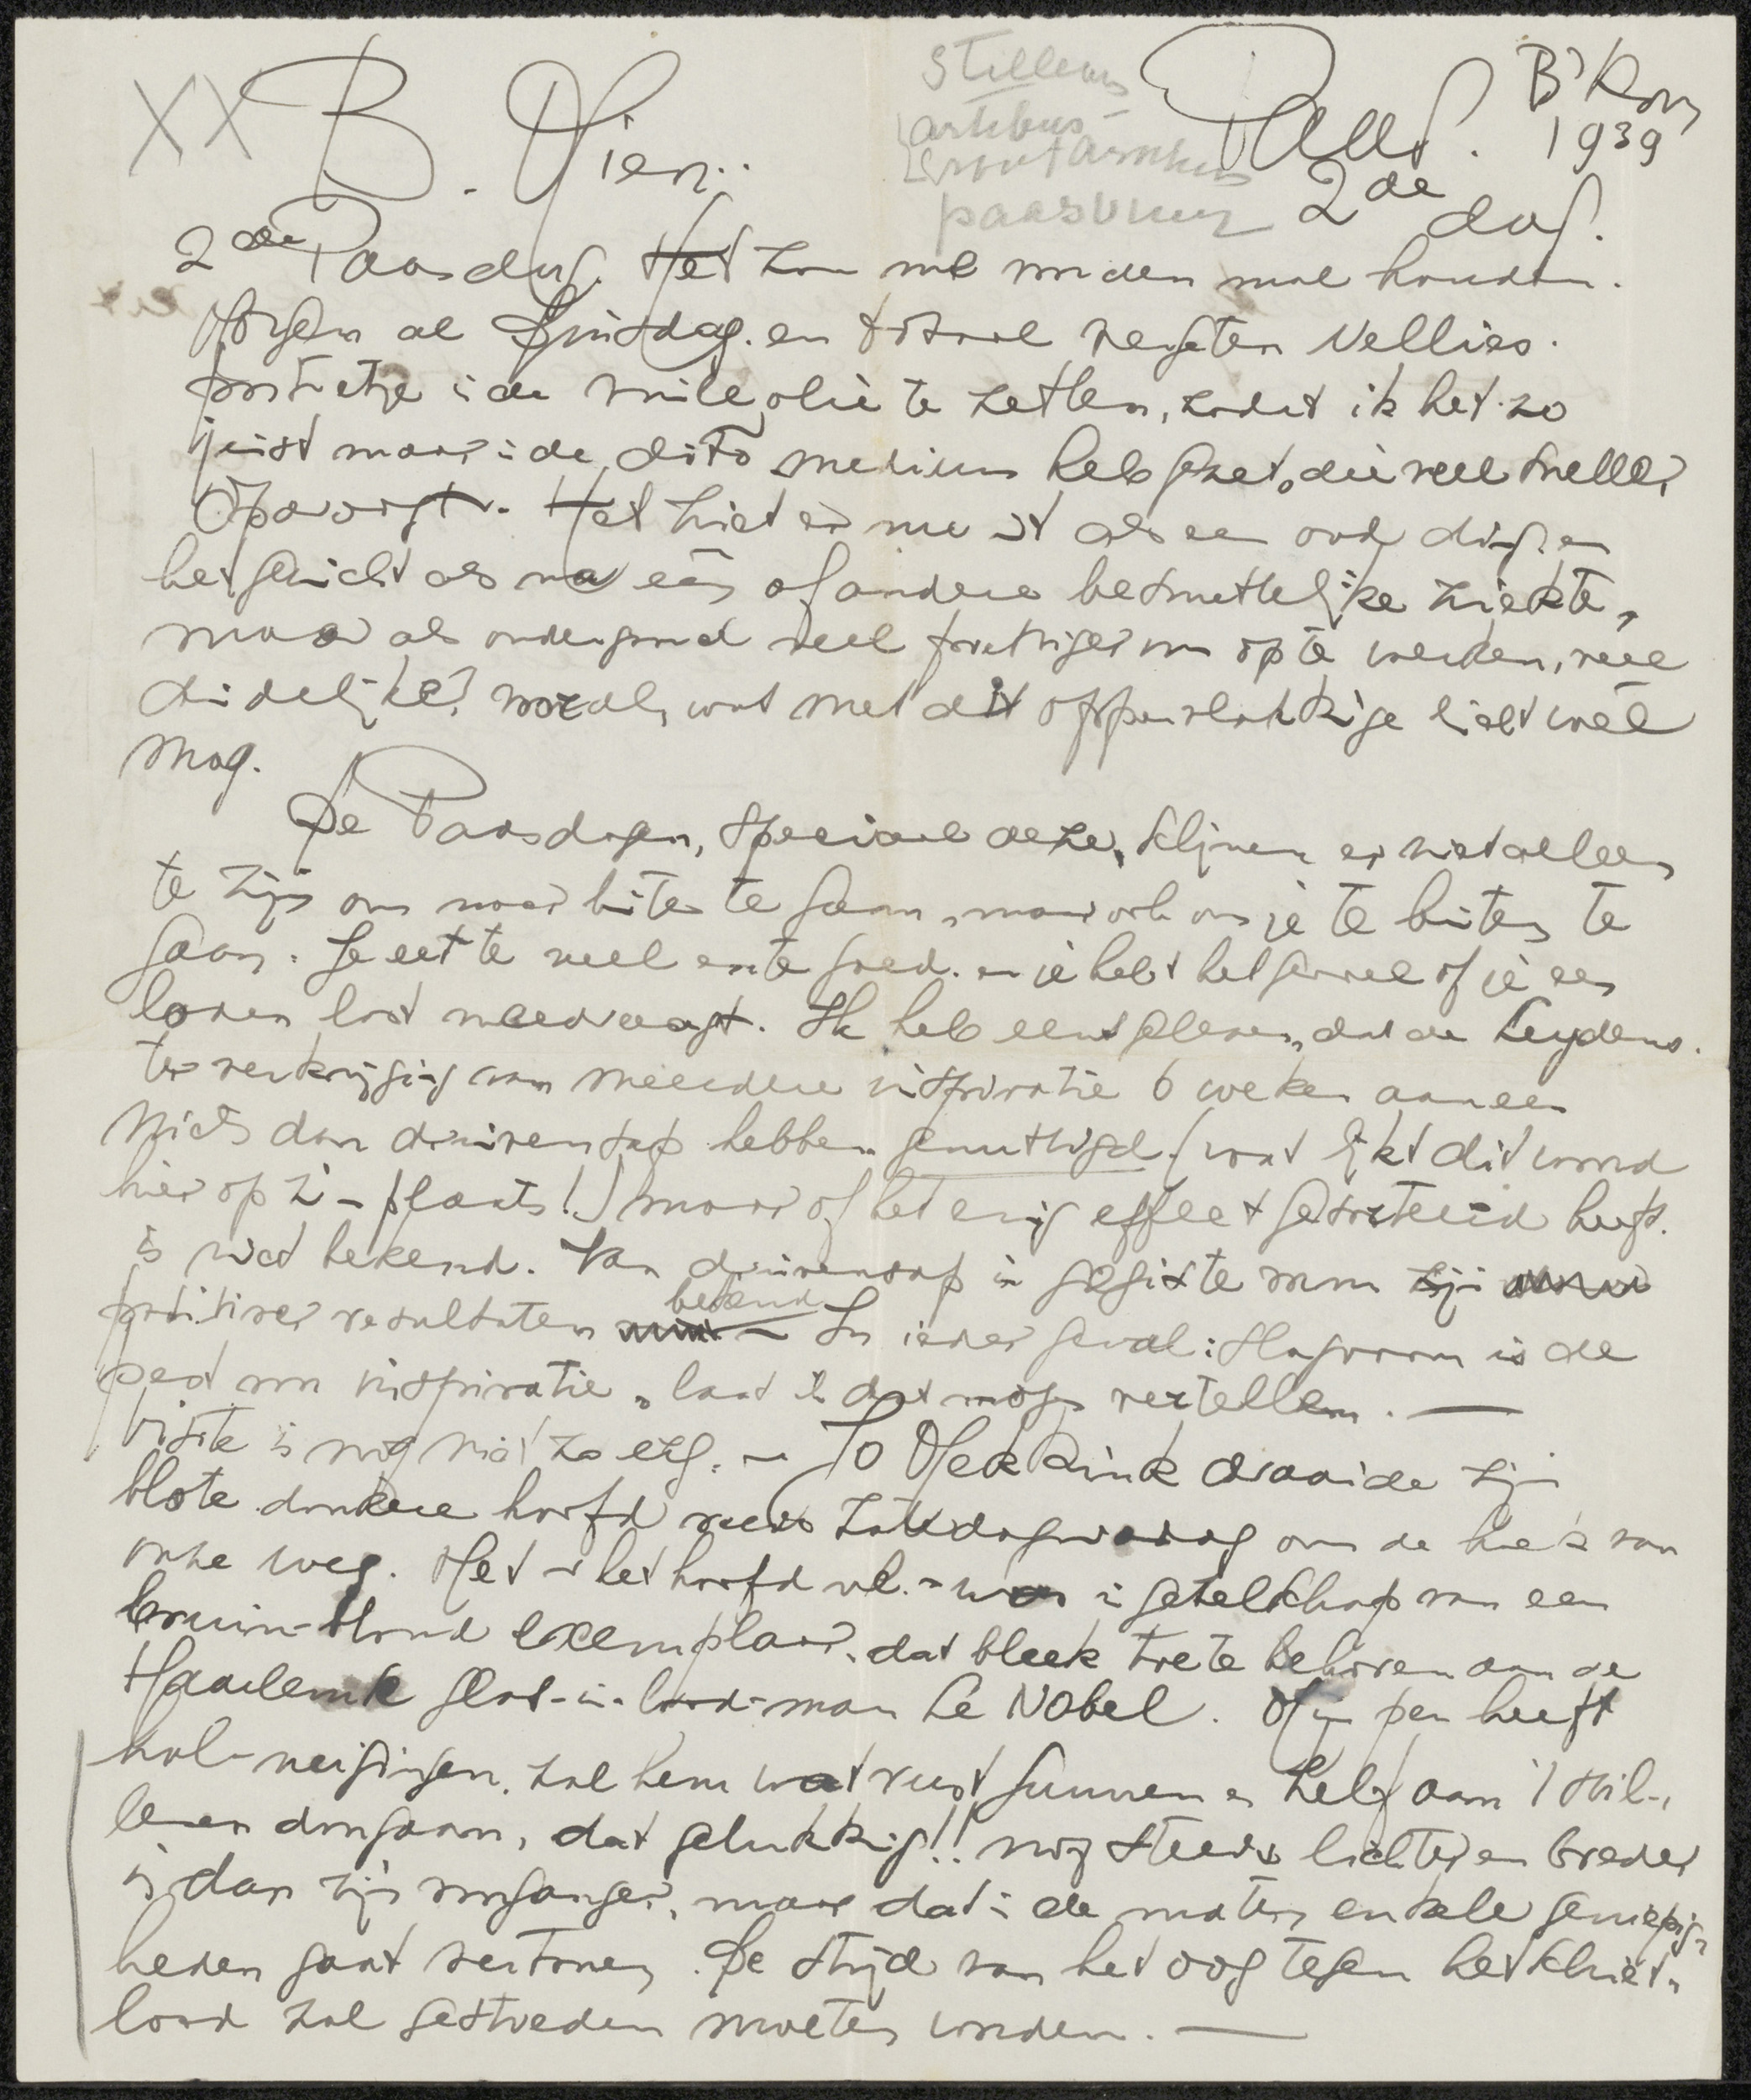 XX B. Vier:
Stilleven
artibus
paasvuur
Paas.
B'Rom
1939
2de dag.
2de Paasdag. Het zou me worden mal houden.
Morgen al Dinsdag. en totaal vergeten Nellies
portretje in de olie te zetten, zodat ik het zo
juist maar in de dito medium heb gezet, die veel sneller
opdroogt. Het ziet er nu uit als een oud ding en
het gezicht als na één of andere besmettelijke ziekte,
maar als ondergrond veel prettiger om op te werken, veel
duidelijker vooral, wat met dit oppervlakkige licht wel
mag.
De Paasdagen, speciaal deze, schijnen er niet alleen
te zijn om naar buiten te gaan, maar ook om je te buiten te
gaan. Je eet te veel en te goed. en je hebt het gevoel of je een
loden last meedraagt. Ik heb eens gelezen, dat de Leydens.
ter verkrijging van meerdere inspiratie 6 weken aaneen
niets dan druivensap hebben genuttigd. (wat lijkt dit woord
hier op z'n plaats!) maar of het enig effect gesorteerd heeft.
is niet bekend. Van druivensap in gegiste vorm zijn
positiever resultaten bekend — In ieder geval: Hagvoam is de
pest voor inspiratie, laat ik dat mogen vertellen. —
Visite is nog niet zo erg. — Jo Mekkink draaide zijn
blote donkere hoofd reeds Zaterdagmiddag om de hoek van
onze weg. Het - het hoofd nl. - was in gezelschap van een
bruin-blond exemplaar, dat bleek toe te behoren aan de
Haarlemse glas-in-lood-man Le Nobel. Mijn pen heeft
hol-neigingen, zal hem wat rust gunnen en zelf aan 't stil-
leven doorgaan, dat gelukkig!! nog steeds lichter en breder
is dan zijn voorganger, maar dat in de maten enkele geniepig-
heden gaat vertonen. De strijd van het oog tegen het schiet-
lood zal gestreden moeten worden. —